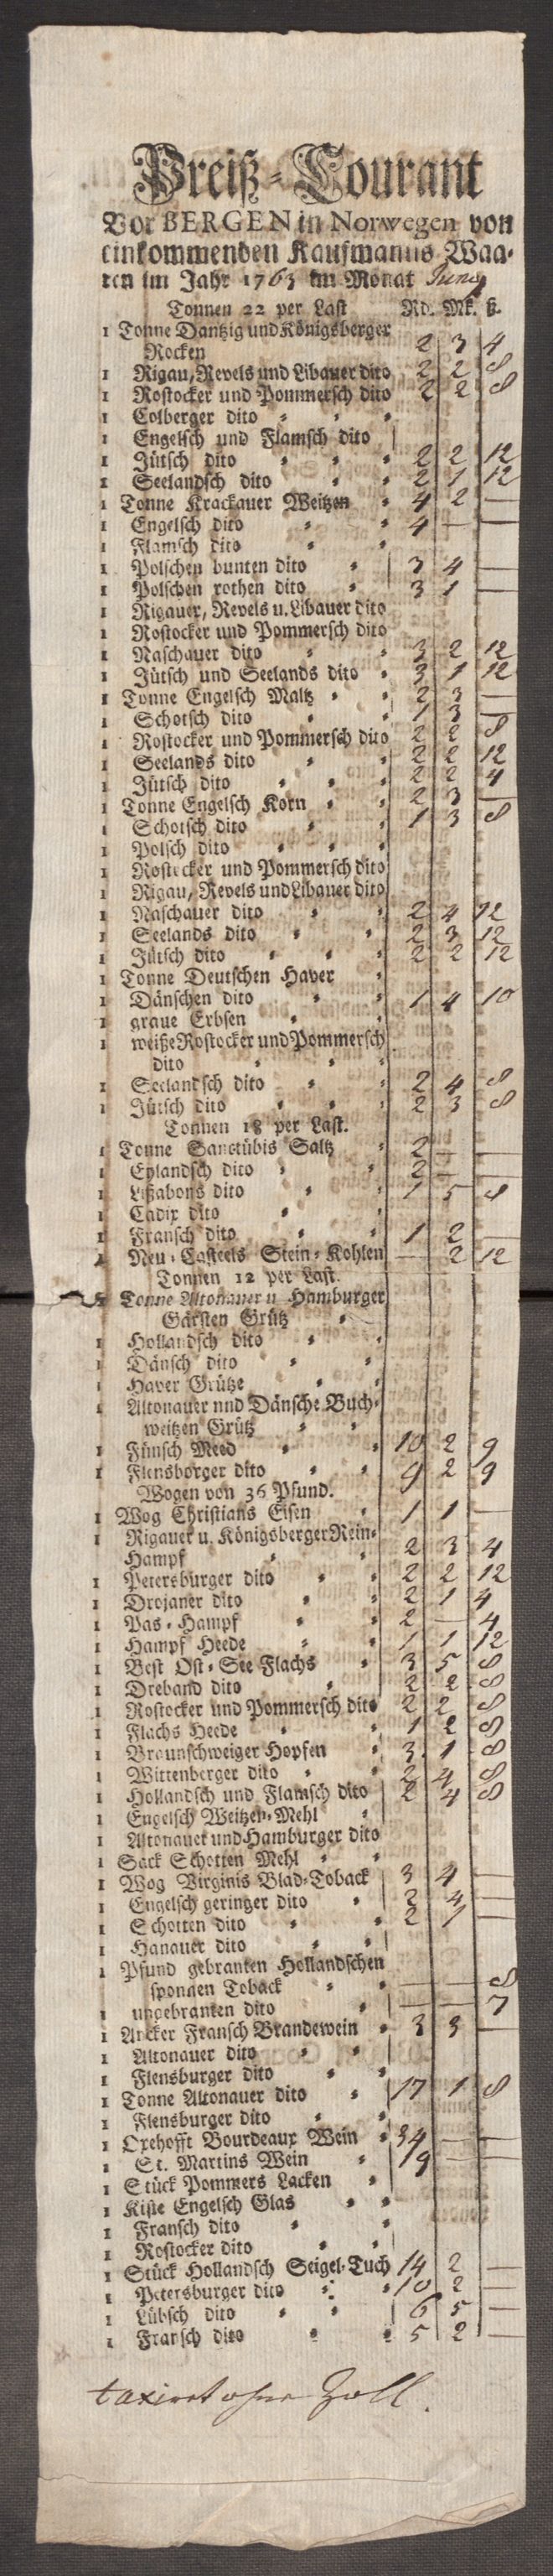 Preiß-Courant
Vor BERGEN in Norwegen von
einkommenden Kaufmanns Waa-
ren im Jahr 1763 im Monat Juny
Tonnen 22 per Last Rd. Mk. ß.
1 Tonne Dantzig und Königsberger
Rocken 2 3 4
1 Rigau, Revels und Libauer dito 2 2 8
1 Rostocker und Pommersch dito 2 2 8
1 Colberger dito
1 Engelsch und Flamsch dito
1 Jütsch dito 2 2 12
1 Seelandsch dito 2 1 12
1 Tonne Krackauer Weitzen 4 2 —
1 Engelsch dito 4 — —
1 Flamsch dito
1 Polschen bunten dito 3 4 —
1 Polschen rothen dito 3 1 —
1 Rigauer, Revels u. Libauer dito
1 Rostocker und Pommersch dito
1 Naschauer dito 3 2 12
1 Jütsch und Seelands dito 3 1 12
1 Tonne Engelsch Maltz 2 3 —
1 Schotsch dito 1 3 —
1 Rostocker und Pommersch dito 2 2 8
1 Seelands dito 2 2 12
1 Jütsch dito 2 2 4
1 Tonne Engelsch Korn 2 3 —
1 Schotsch dito 1 3 8
1 Polsch dito
1 Rostocker und Pommersch dito
1 Rigau, Revels und Libauer dito
1 Naschauer dito 2 4 12
1 Seelands dito 2 3 12
1 Jütsch dito 2 2 12
1 Tonne Deutschen Haver
1 Dänschen dito 1 4 10
1 graue Erbsen
1 weiße Rostocker und Pommersch
dito
1 Seelandsch dito 2 4 8
1 Jütsch dito 2 3 8
Tonnen 18 per Last.
1 Tonne Sanctübis Saltz 2 — —
1 Eylandsch dito 2 — —
1 Lißabons dito 1 5 8
1 Cadix dito
1 Fransch dito 1 2 —
1 Neu-Casteels Stein-Kohlen — 2 12
Tonnen 12 per Last.
1 Tonne Altonauer u Hamburger
Gärsten Grütz
1 Hollandsch dito
1 Dänsch dito
1 Haver Grütze
1 Altonauer nnd Dänsche Buch-
weitzen Grütz
1 Fünsch Meed 10 2 9
1 Flensborger dito 9 2 9
Wogen von 36 Pfund.
1 Wog Christians Eisen 1 1 —
1 Rigauer u. Königsberger Rein-
Hampf 2 3 4
1 Petersburger dito 2 2 12
1 Drojaner dito 2 1 4
1 Pas-Hampf 2 — 4
1 Hampf Heede 1 1 12
1 Best Ost-See Flachs 3 5 8
1 Dreband dito 2 2 8
1 Rostocker und Pommersch dito 2 2 8
1 Flachs Heede 1 2 8
1 Braunschweiger Hopfen 3 1 8
1 Wittenberger dito 2 4 8
1 Hollandsch und Flamsch dito 2 4 8
1 Engelsch Weitzen-Mehl
1 Altonauer und Hamburger dito
1 Sack Schotten Mehl
1 Wog Virginis Blad-Toback 3 4 —
1 Engelsch geringer dito 2 4 —
1 Schotten dito 2 1 —
1 Hanauer dito
1 Pfund gebranten Hollandschen
sponnen Toback — — 8
1 ungebranten dito — — 7
1 Ancker Fransch Brandewein 3 3 —
1 Altonauer dito
1 Flensburger dito
1 Tonne Altonauer dito 17 1 8
1 Flensburger dito
1 Oxehofft Bourdeaux Wein 34 — —
1 St. Martins Wein 19 — —
1 Stück Pommers Lacken
1 Kiste Engelsch Glas
1 Fransch dito
1 Rostocker dito
1 Stück Hollandsch Seigel-Tuch 14 2 —
1 Petersburger dito 10 2 —
1 Lübsch dito 6 5 —
1 Fransch dito 5 2 —
taxiret ohne Zoll.